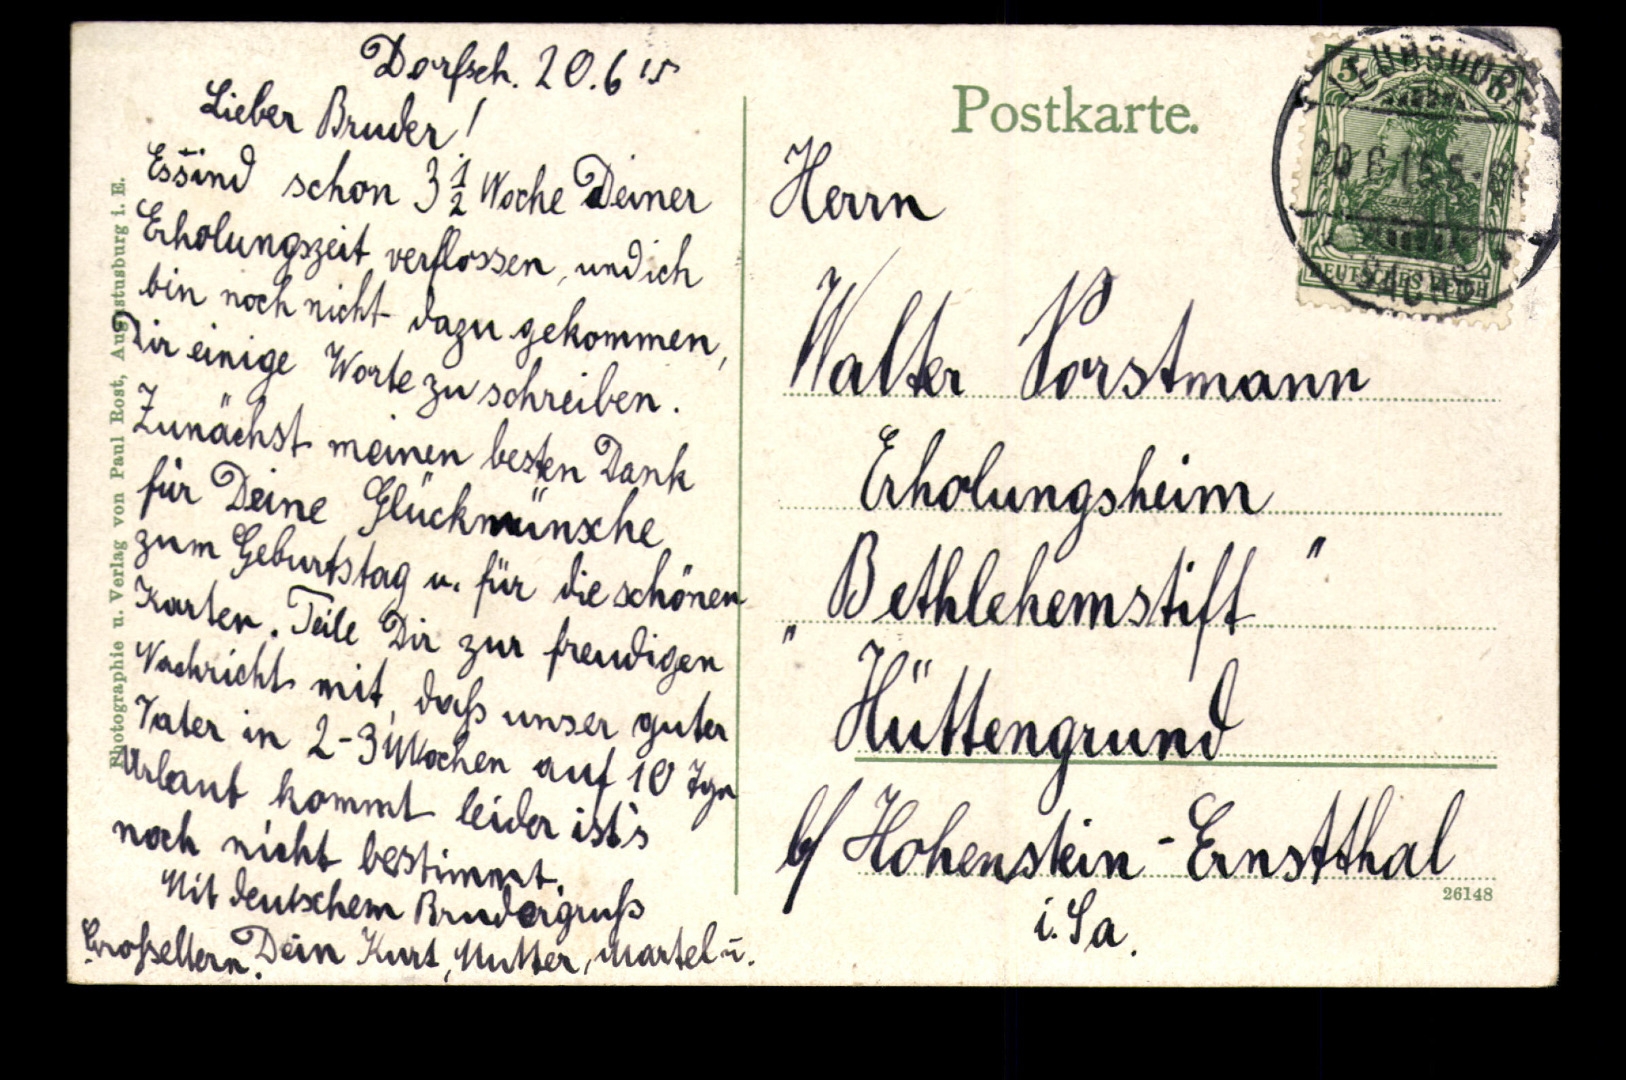 Dorfsch. 20.6 15
Lieber Bruder!
Es sind schon 3 1/2 Woche Deiner
Erholungszeit verflossen, und ich
bin noch nicht dazu gekommen,
Dir einige Worte zu schreiben.
Zunächst meinen besten Dank
für Deine Glückwünsche
zum Geburtstag u. für die schönen
Karten. Teile Dir zur freudigen
Nachricht mit, daß unser guter
Vater in 2-3 Wochen auf 10 Tgn
Urlaub kommt leider ist's
noch nicht bestimmt.
Mit deutschem Brudergruß
Dein Kurt, Mutter, Martel u.
Großeltern.
Photographie u. Verlag von Paul Rost, Augustusburg i. E.
Postkarte.
Herrn
Walter Vorstmann
Erholungsheim
"Bethlehemstift"
Hüttengrund
b/ Hohenstein-Ernstthal
i. Sa.
26148
5
DEUTSCHES REICH
20 6 15